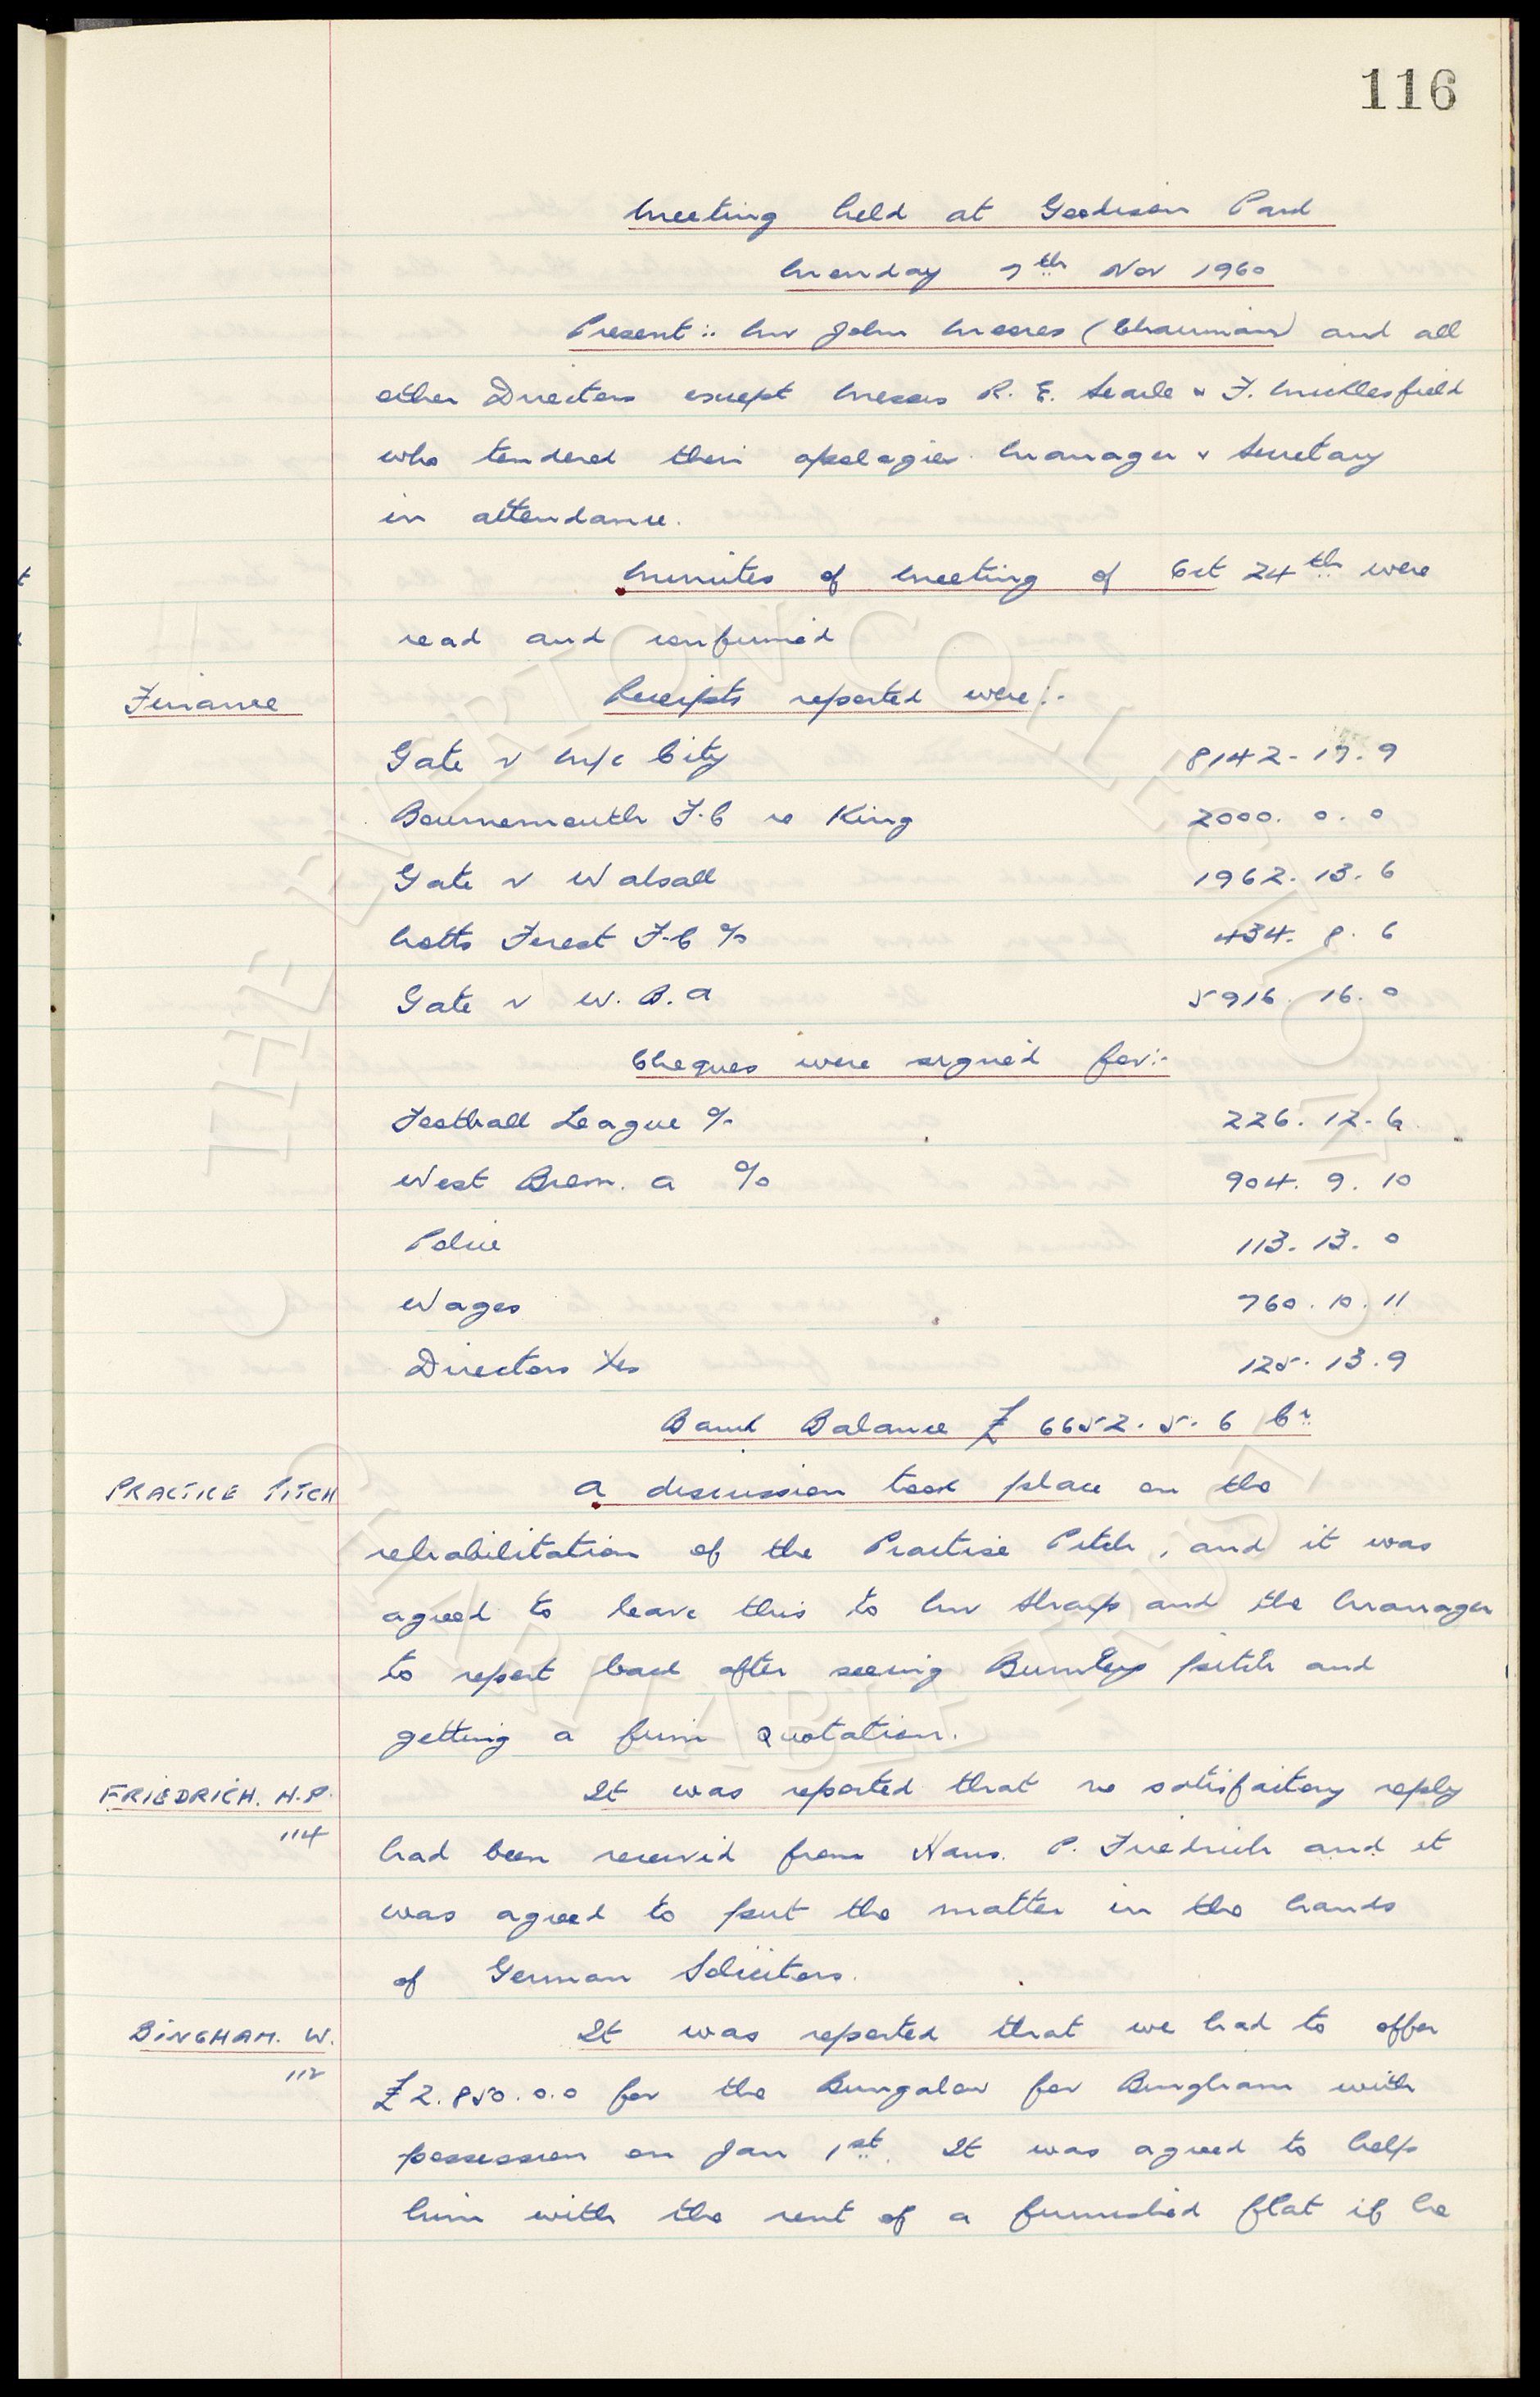 116
Meeting held at Goodison Park
Monday 7th Nov 1960
Present:: Mr John Moores (Chairman) and all
other Directors except Messrs R. E. Searle & F. Micklesfield
who tendered their apologies. Manager & Secretary
in attendance.
Minutes of Meeting of Oct 24th were
read and confirmed
Finance Receipts reported were:-
Gate v M/c City 8142-17.9
Bournemouth F.C re King 2000. 0. 0
Gate v Walsall 1962. 13. 6
Notts Forest F.C % 434. 8. 6
Gate v W. B. A 5916. 16. 0
Cheques were signed for:-
Football League % 226. 12. 6
West Brom. A % 904. 9. 10
Police 113. 13. 0
Wages 760. 10. 11
Directors Xes 125. 13. 9
Bank Balance £ 6652. 5. 6 Cr
PRACTICE PITCH A discussion took place on the
rehabilitation of the Practise Pitch, and it was
agreed to leave this to Mr Sharp and the Manager
to report back after seeing Burnleys pitch and
getting a firm Quotation.
FRIEDRICH. H.P. It was reported that no satisfactory reply
114
had been received from Hans. P. Friedrich and it
was agreed to put the matter in the hands
of German Solicitors.
BINGHAM. W. It was reported that we had to offer
112
£2.850.0.0 for the Bungalow for Bingham with
possession on Jan 1st. It was agreed to help
him with the rent of a furnished flat if he